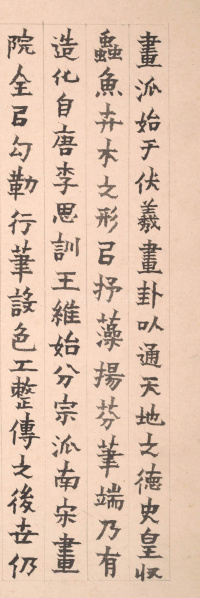 畫派始于伏羲畫卦以通天地之德史皇收
蟲魚卉木之形㠯抒藻揚芬筆端乃有
造化自唐李思訓王維始分宗派南宋畫
院全㠯勾勒行筆設色工整傳之後世仍